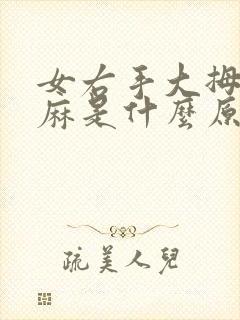 女右手大拇
麻是什麼原
疏美人兒